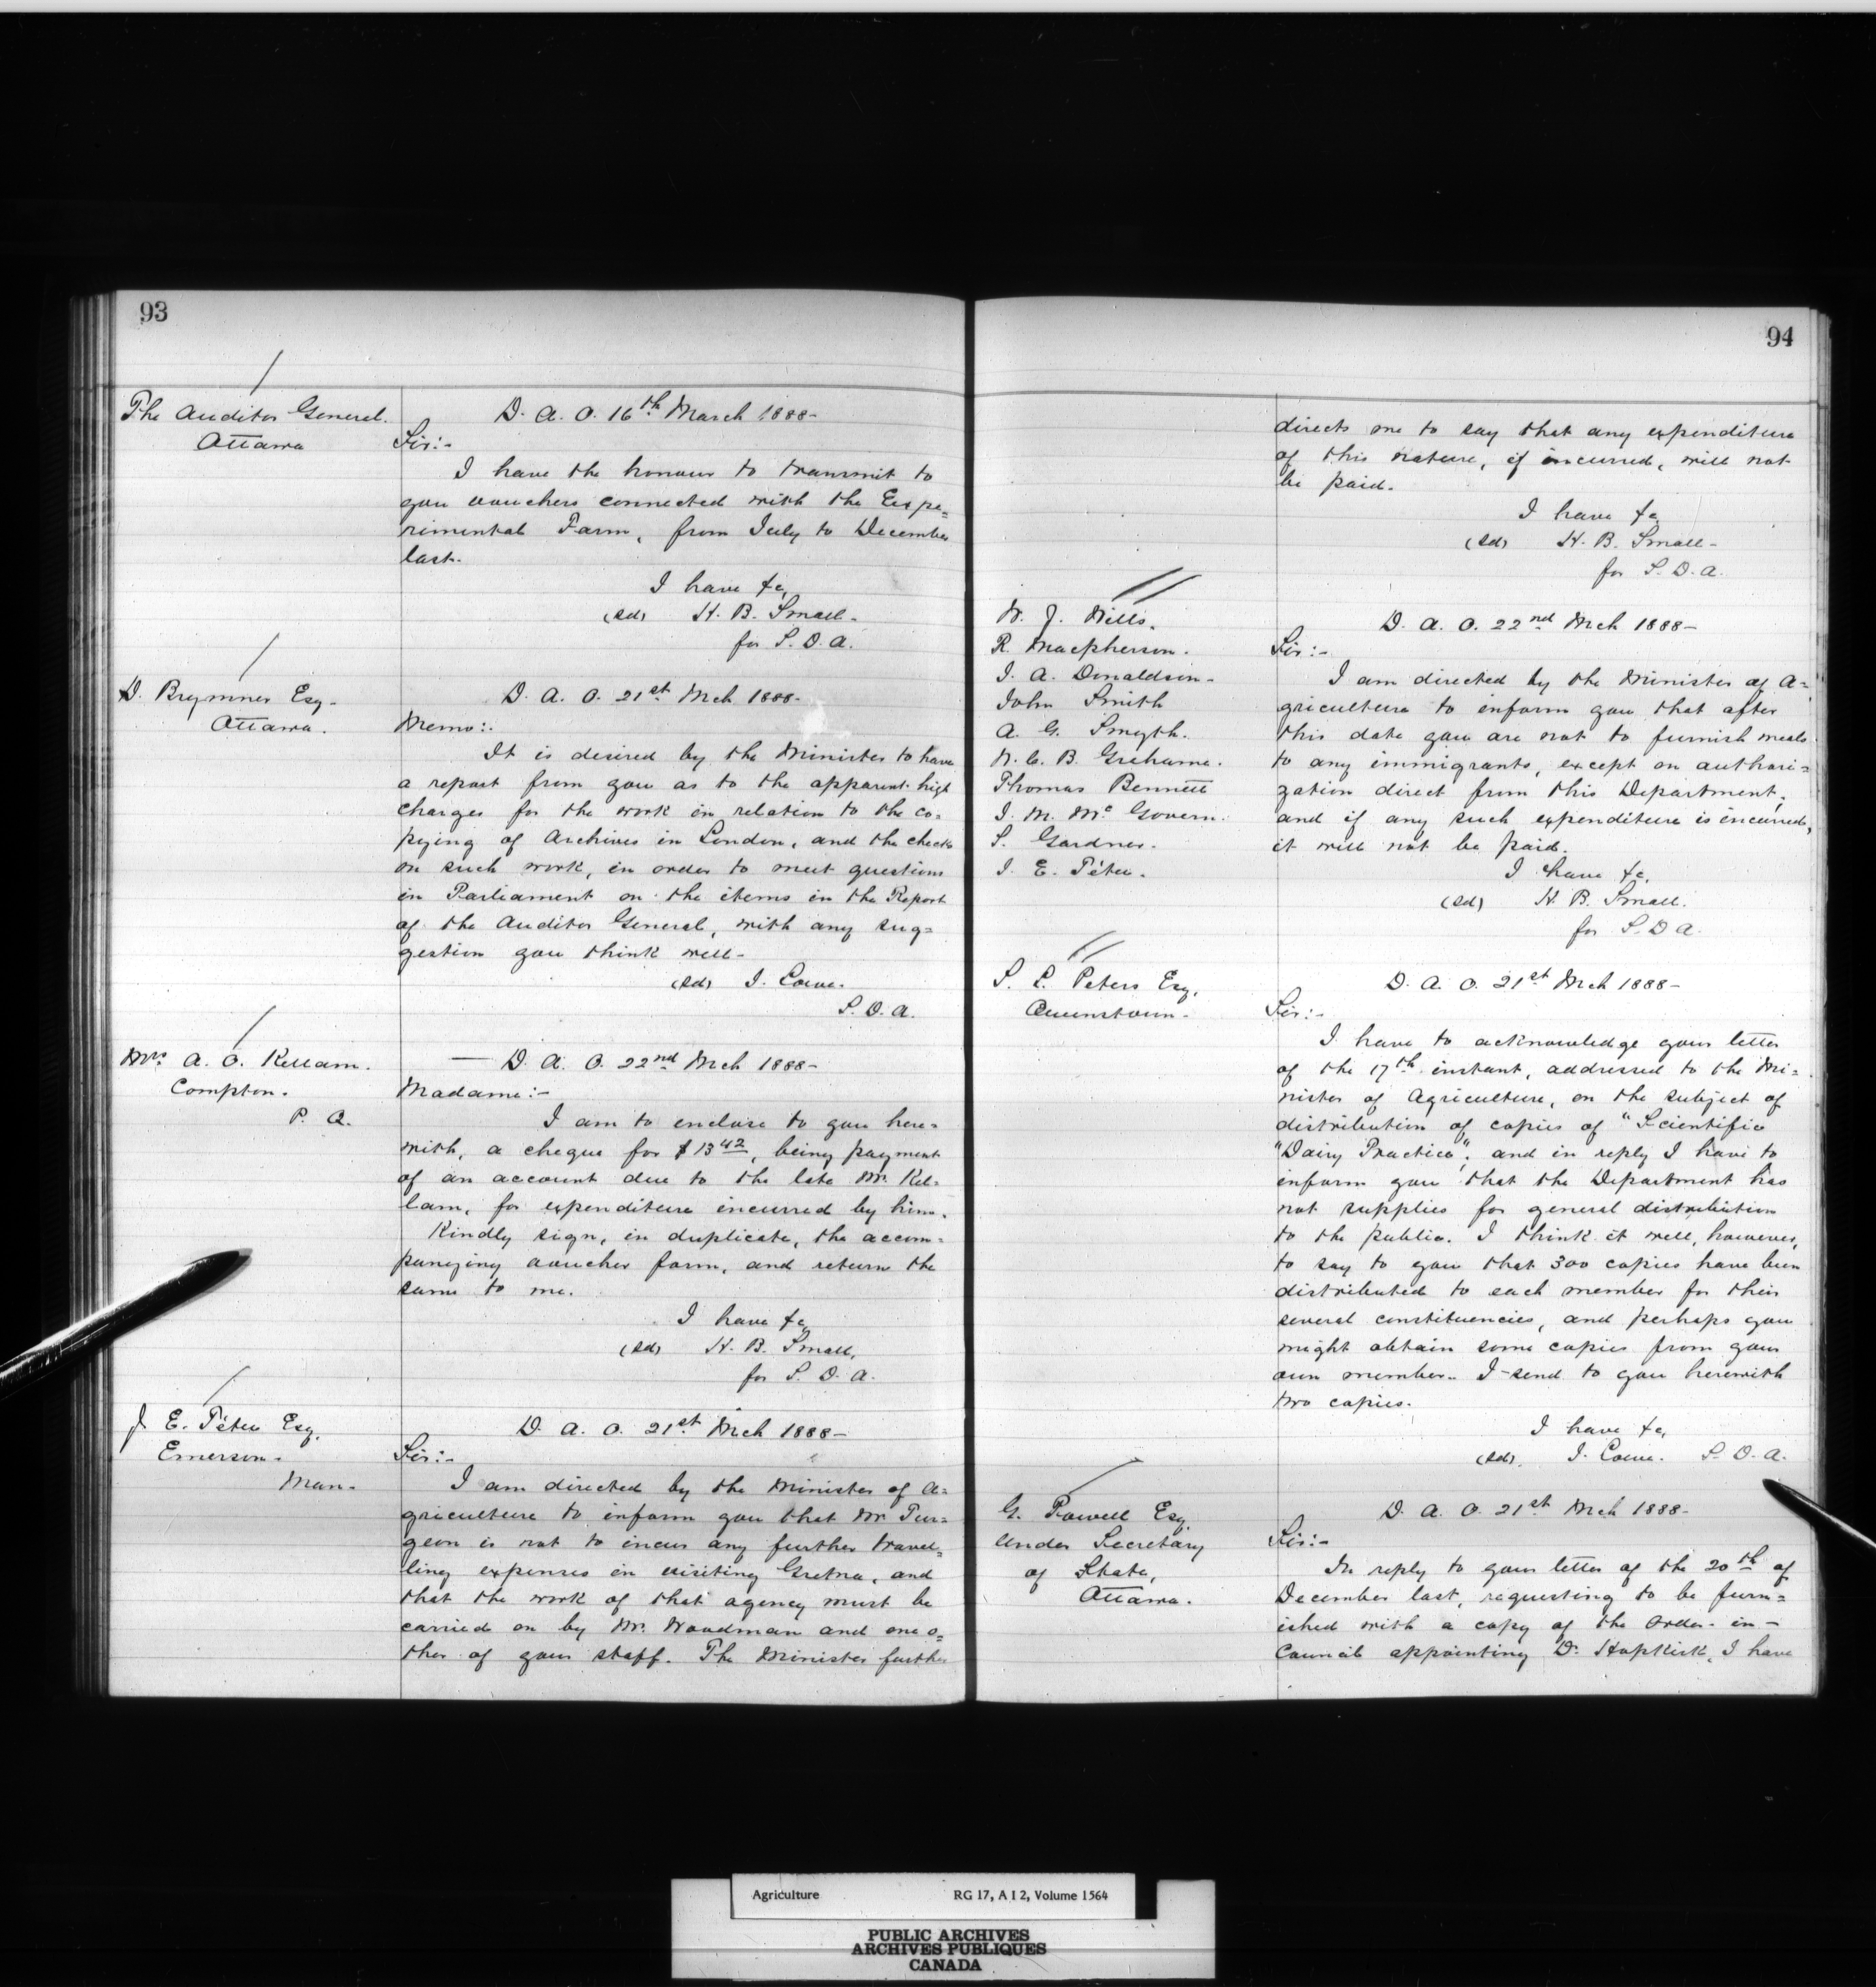 93
The Auditor General.
Ottawa
D. A. O. 16th March 1888-
Sir:-
I have the honour to transmit to
you vouchers connected with the Expe=
rimental Farm, from July to December
last.
I have &c,
(sd) H. B. Small.
for S. D. A.
D. Brymner Esq.
Ottawa.
D. A. O. 21st Mch 1888-
Memo:.
It is desired by the Minister to have
a report from you as to the apparent high
charges for the work in relation to the co=
pying of Archives in London, and the checks
on such work, in order to meet questions
in Parliament on the items in the Report
of the Auditor General, with any sug=
gestion you think well-
(sd) J. Lowe.
S. D. A.
Mrs A. O. Kellam.
Compton.
P. Q.
D. A. O. 22nd Mch 1888-
Madame:-
I am to enclose to you here=
with, a cheque for $13 42, being payment
of an account due to the late Mr. Kel=
lam, for expenditure incurred by him.
Kindly sign, in duplicate, the accom=
panying voucher form, and return the
same to me.
I have &c,
(sd) H. B. Small,
for S. D. A.
J. E. Têtu Esq,
Emerson.
Man.
D. A. O. 21st Mch 1888-
Sir:-
I am directed by the Minister of A=
griculture to inform you that Mr Tur=
geon is not to incur any further travel=
ling expenses in visiting Gretna, and
that the work of that agency must be
carried on by Mr. Woodman and one o=
ther of your staff. The Minister further
94
directs me to say that any expenditure
of this nature, if incurred, will not
be paid.
I have &c
(sd) H. B. Small-
for S. D. A.
W. J. Wills.
R. Macpherson.
J. A. Donaldson-
John Smith
A. G. Smyth.
W. C. B. Grahame.
Thomas Bennett
J. M. McGovern.
S. Gardner.
J. E. Têtu.
D. A. O. 22nd Mch 1888-
Sir:-
I am directed by the Minister of A=
griculture to inform you that after
this date you are not to furnish meals
to any immigrants, except on authori=
zation direct from this Department,
and if any such expenditure is incurred,
it will not be paid.
I have &c,
(sd) H. B. Small.
for S. D A.
S. L. Peters Esq,
Queenstown-
D. A. O. 21st Mch 1888-
Sir:-
I have to acknowledge your letter
of the 17th instant, addressed to the Mi=
nister of Agriculture, on the subject of
distribution of copies of "Scientific
"Dairy Practice", and in reply I have to
inform you that the Department has
not supplies for general distribution
to the public. I think it well, however,
to say to you that 300 copies have been
distributed to each member for their
several constituencies, and perhaps you
might obtain some copies from your
own member. I send to you herewith
two copies.
I have &c,
(sd). J. Lowe. S. D. A.
G. Powell Esq,
Under Secretary
of State,
Ottawa.
D. A. O. 21st Mch 1888-
Sir:-
In reply to your letter of the 20th of
December last, requesting to be furn=
ished with a copy of the Order-in-
Council appointing Dr. Hopkirk, I have
Agriculture RG 17, A I 2, Volume 1564
PUBLIC ARCHIVES
ARCHIVES PUBLIQUES
CANADA